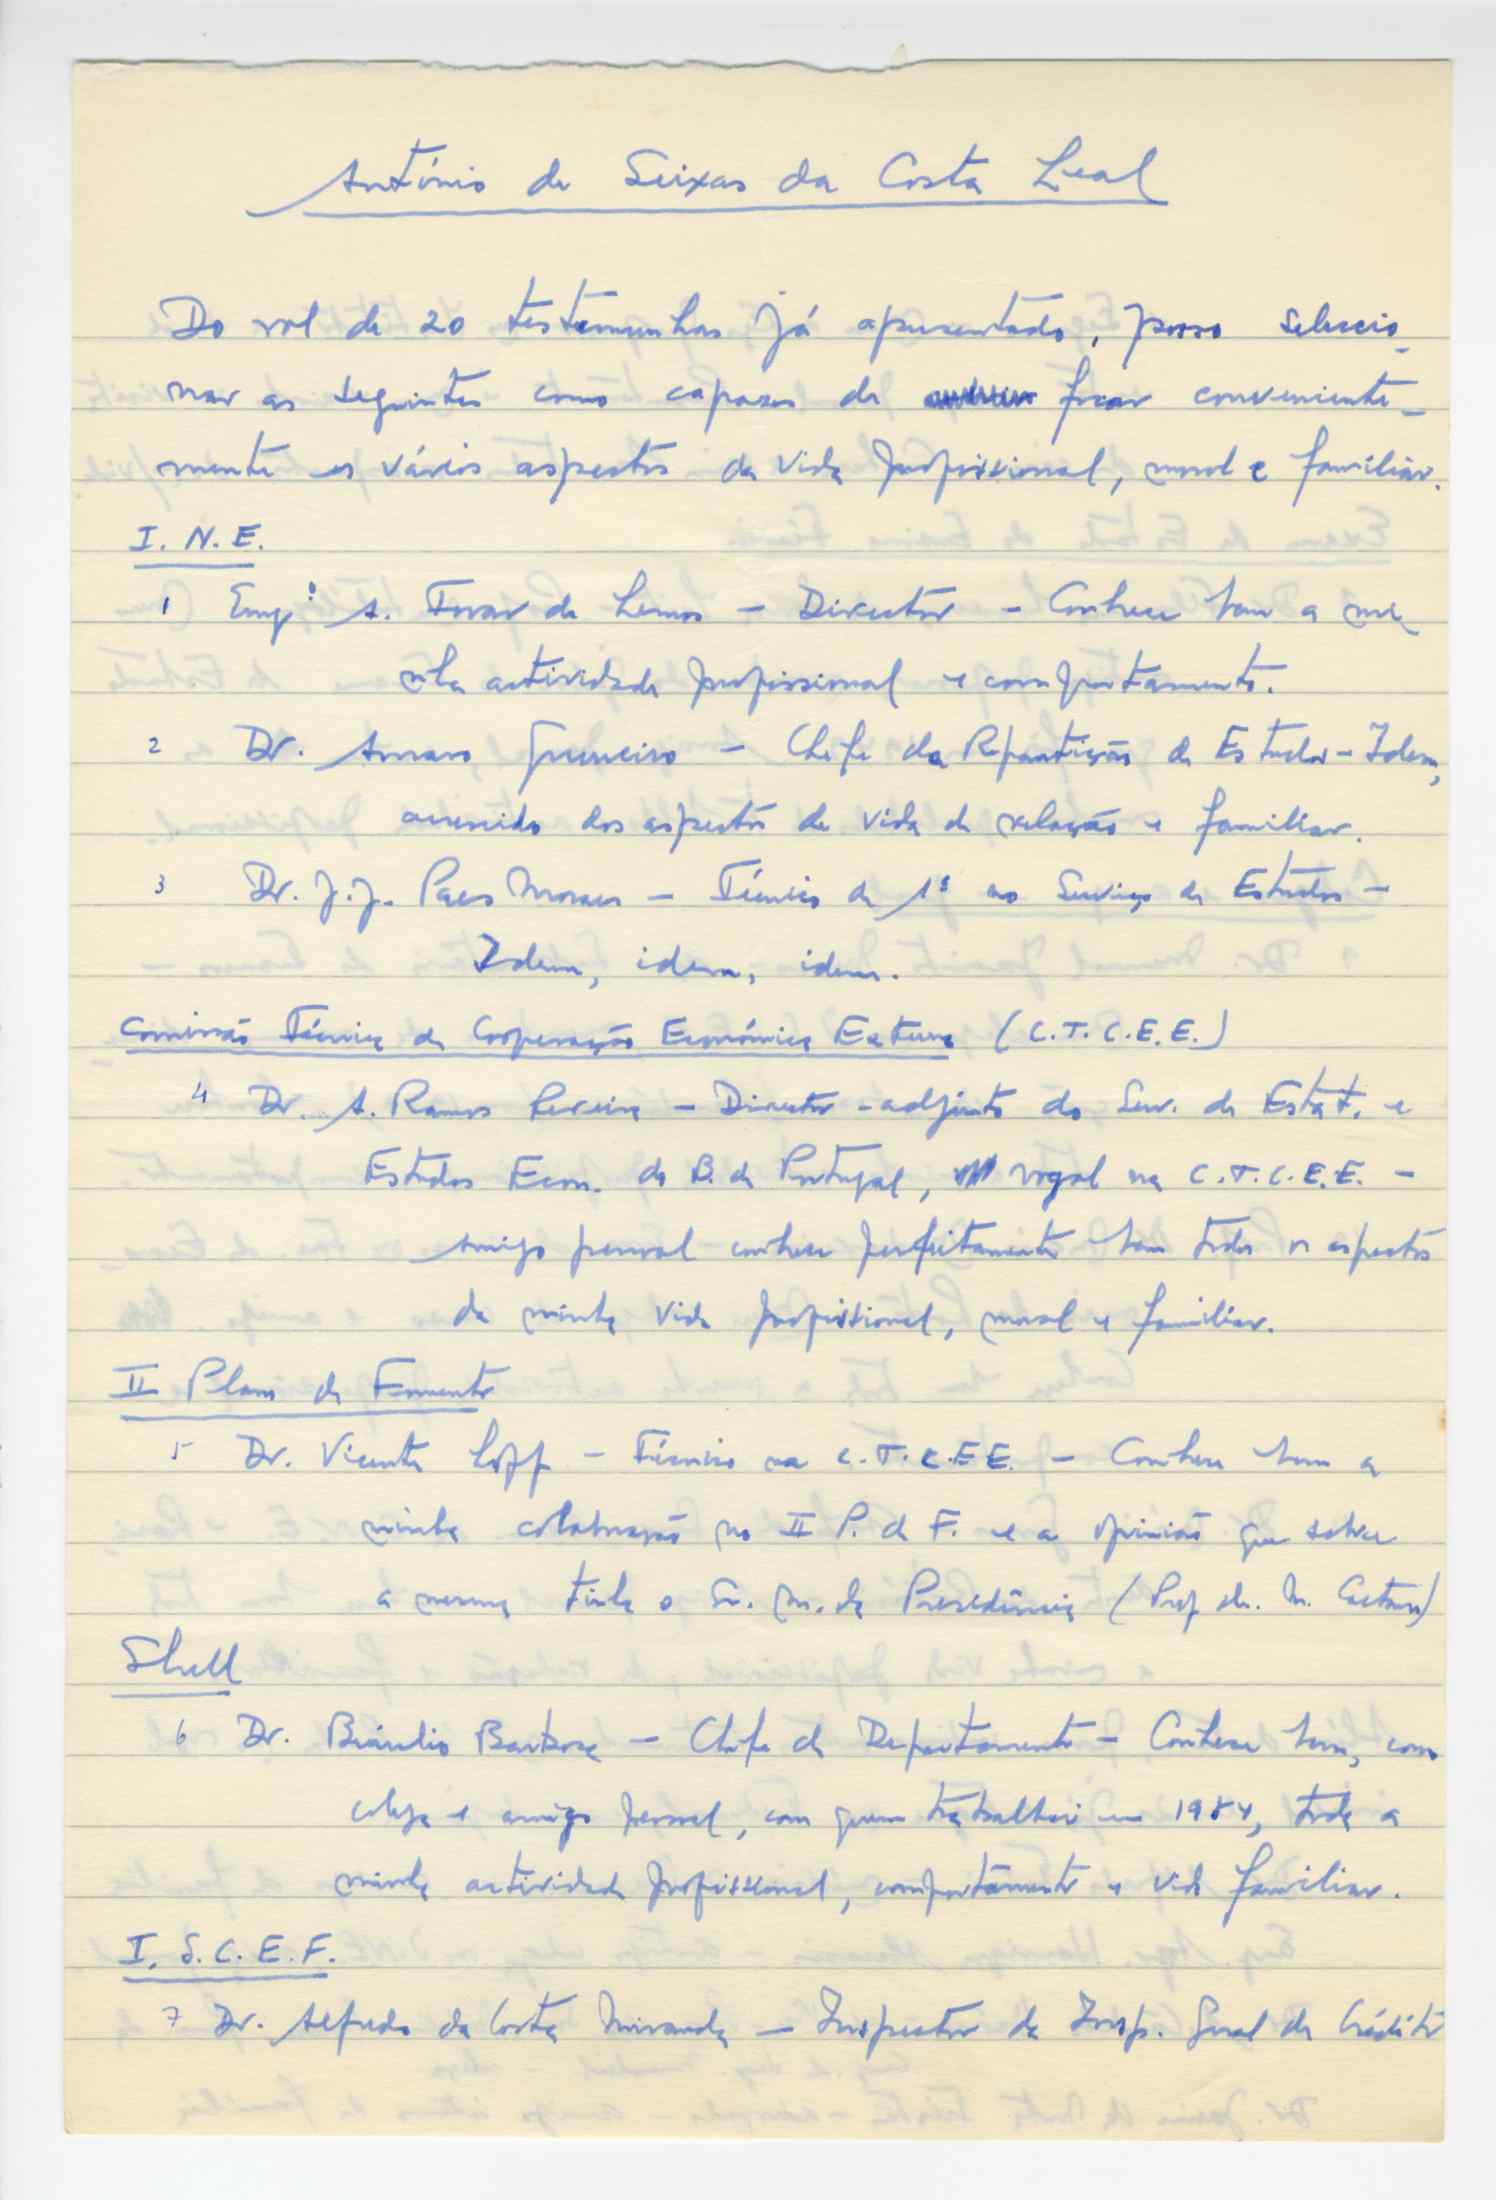 António de Seixas da Costa Leal
Do rol de 20 testemunhas já apresentado, posso seleccio-
nar as seguintes como capazes de focar conveniente-
mente os vários aspectos da vida profissional, moral e familiar.
I. N. E.
1 Engº A. Tovar de Lemos – Director – Conhece bem a mi-
nha actividade profissional e comportamento.
2 Dr. Amaro Guerreiro – Chefe da Repartição de Estudos – Idem,
acrescido dos aspectos de vida de relação e familiar.
3 Dr. J. J. Paes Moraes – Técnico de 1ª no Serviço de Estudos –
Idem, idem, idem.
Comissão Técnica de Cooperação Económica Externa (C.T.C.E.E.)
4 Dr. A. Ramos Pereira – Director-adjunto do Serv. de Estat. e
Estudos Econ. do B. de Portugal, vogal na C.T.C.E.E. –
Amigo pessoal conhece perfeitamente bem todos os aspectos
da minha vida profissional, moral e familiar.
II Plano de Fomento
5 Dr. Vicente – Técnico na C.T.C.E.E. – Conhece bem a
minha colaboração no II P. de F. e a opinião que sobre
a mesma tinha o Sr. M. da Presidência (Prof. dr. M. Caetano)
Shell
6 Dr. Bráulio Barbosa – Chefe de Departamento – Conhece bem, como
colega e amigo pessoal, com quem trabalhei em toda a
minha actividade profissional, comportamento e vida familiar.
I. S. C. E. F.
7 Dr. Alfredo da Costa Miranda – Inspector da Insp. Geral de Crédito